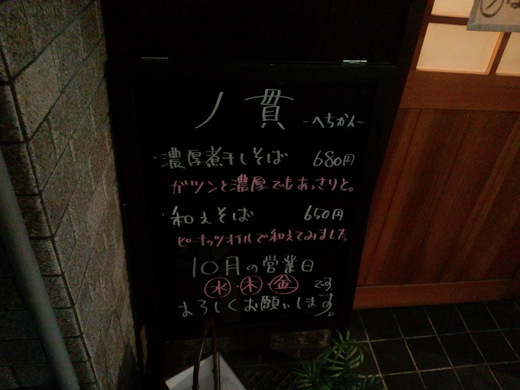 丿貫 -へちかん-
・濃厚煮干しそば 680円
ガツンと濃厚でもあっさりと。
・和えそば 650円
ピーナッツオイルで和えてみました。
10月の営業日
水・木・金です
よろしくお願いします。